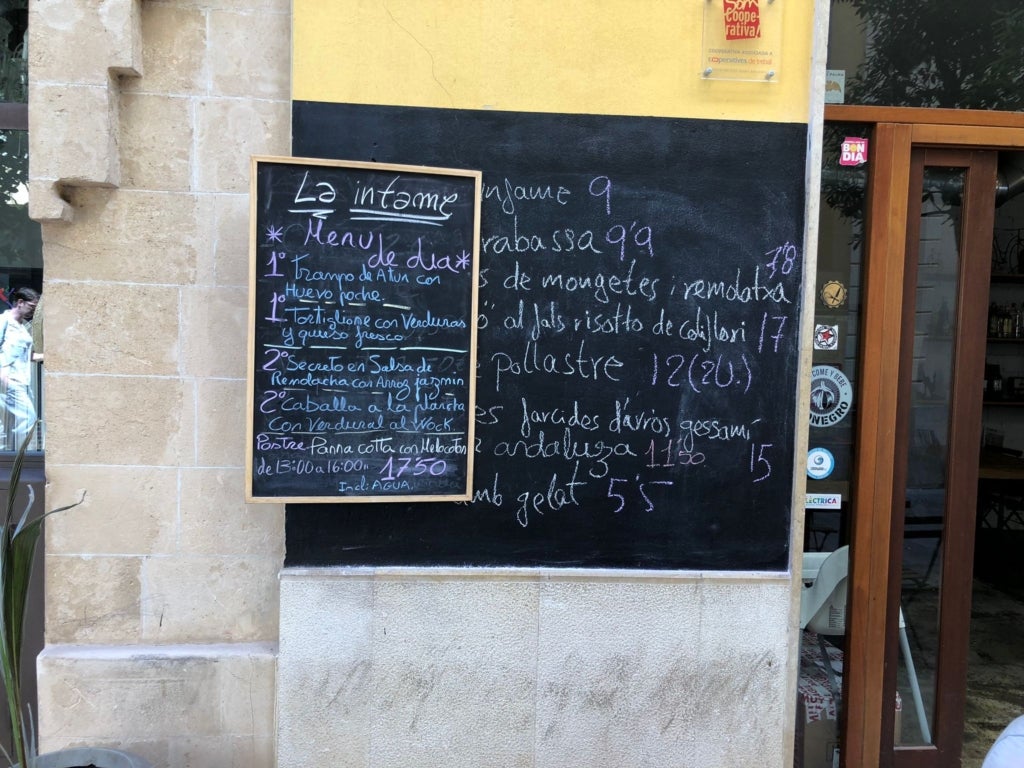 Som
Coope-
rativa!
COOPERATIVA ASSOCIADA A
cooperatives de treball
BON
DIA
La infame
* Menu
de dia *
1º Trampo de Atun con
Huevo poche.
1º Tortiglione con Verduras
y queso fresco
2º Secreto en Salsa de
Remolacha con Arroz jazmin
2º Caballa a la plancha
Con Verdural al Wock
Postre Panna cotta con Melocoton
de 13:00 a 16:00h 1750
Incl: AGUA.
infame 9
rabassa 9'9
s de mongetes i remolatxa 7'8
o" al fals risotto de coliflori 17
pollastre 12 (2U.)
es farcides d'arròs gessamí
andaluza 11'50 15
amb gelat 5'5
COME Y BEBE
NEGRO
ELÈCTRICA